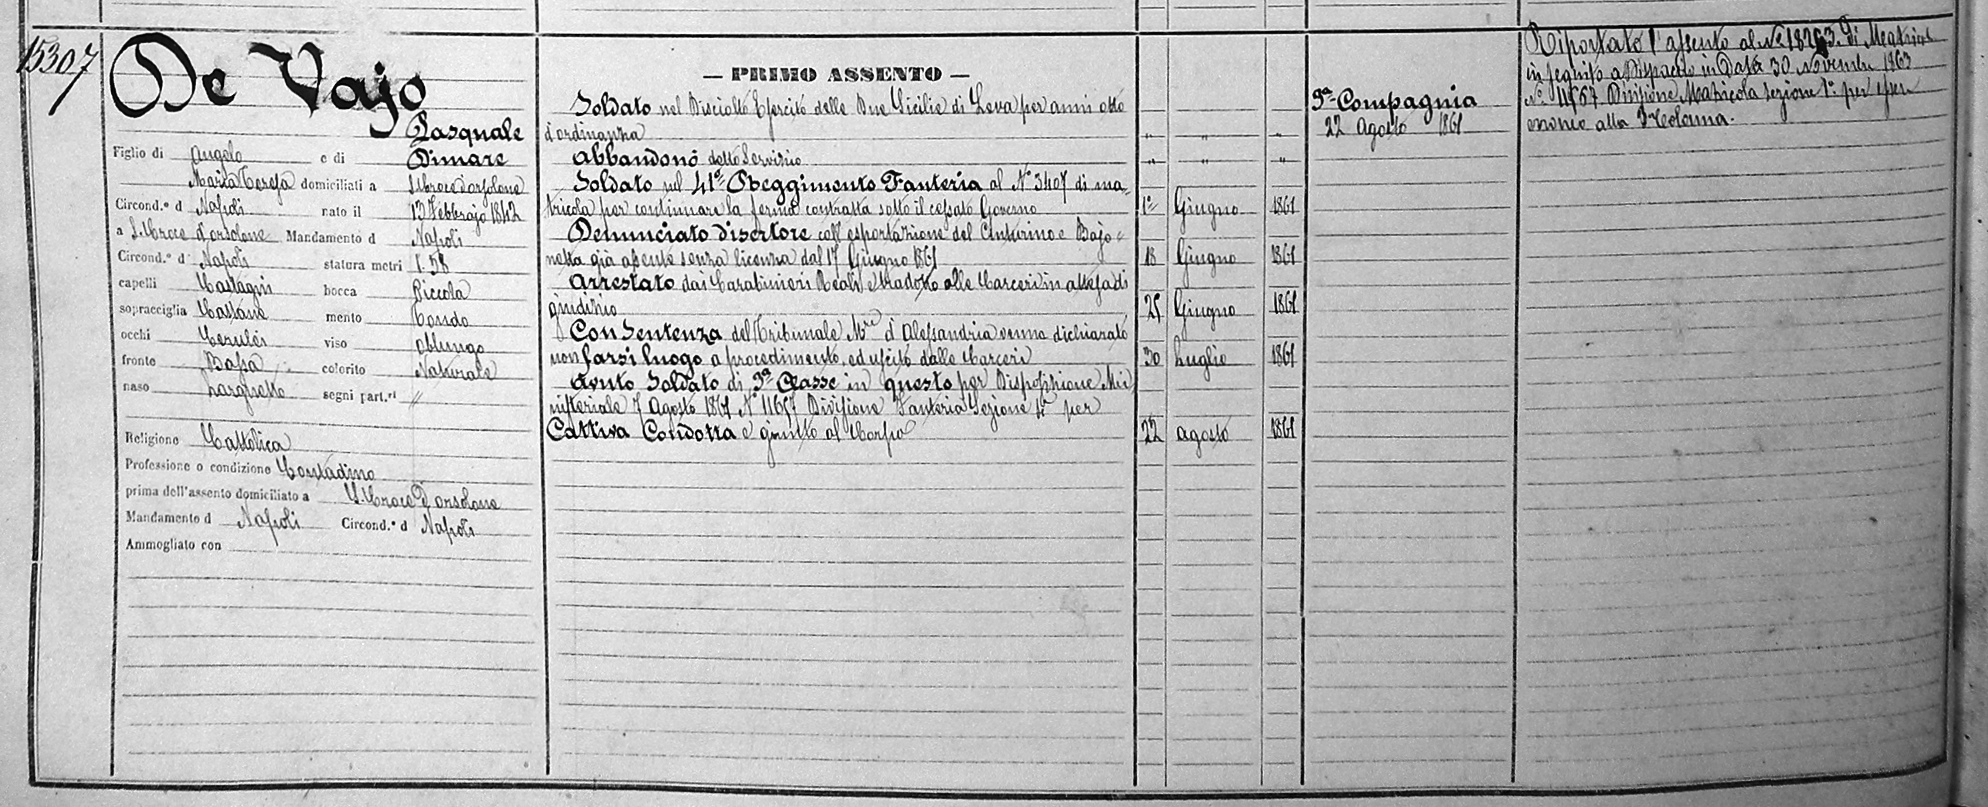 15307
De Vajo
Pasquale
Figlio di Angelo e di Dimare
Maria Teresa domiciliati a S. Croce d'orsolone
Circond.º d Napoli nato il 13 Febbrajo 1842
a S. Croce d'orsolone Mandamento d Napoli
Circond.º d Napoli statura metri 1.58
capelli Castagni bocca Piccola
sopracciglia Castane mento Tondo
occhi Cerulei viso oblungo
fronte Bassa colorito Naturale
naso Larghetto segni part.ri "
Religione Cattolica
Professione o condizione Contadino
prima dell'assento domiciliato a S. Croce D'orsolone
Mandamento d Napoli Circond.º d Napoli
Ammogliato con
— PRIMO ASSENTO —
Soldato nel Disciolto Esercito delle Due Sicilie di Leva per anni otto
d'ordinanza " " "
Abbandonò detto Servizio " " "
Soldato nel 41º Reggimento Fanteria al Nº 3407 di ma-
tricola per continuare la ferma contratta sotto il cessato Governo 1º Giugno 1861
Denunciato disertore coll'esportazione del Cinturino e Bajo-
netta già assente senza licenza dal 17 Giugno 1861 18 Giugno 1861
Arrestato dai Carabinieri Reali e tradotto alle Carceri in attesa di
giudizio 25 Giugno 1861
Con Sentenza del Tribunale M.re d'Alessandria venne dichiarato
non farsi luogo a procedimento, ed uscito dalle Carceri 30 Luglio 1861
Avuto Soldato di 3ª Classe in questo per Disposizione Mi-
nisteriale 7 Agosto 1861 Nº 11657 Divisione Fanteria Sezione 4ª per
Cattiva Condotta e giunto al Corpo 22 agosto 1861
9ª Compagnia
22 Agosto 1861
Riportato l'assento al Nº 18263 di Matricola
in seguito a Dispaccio in Data 30 Novembre 1863
Nº 11567 Divisione Matricola Sezione 1ª per essere
erroneo alla